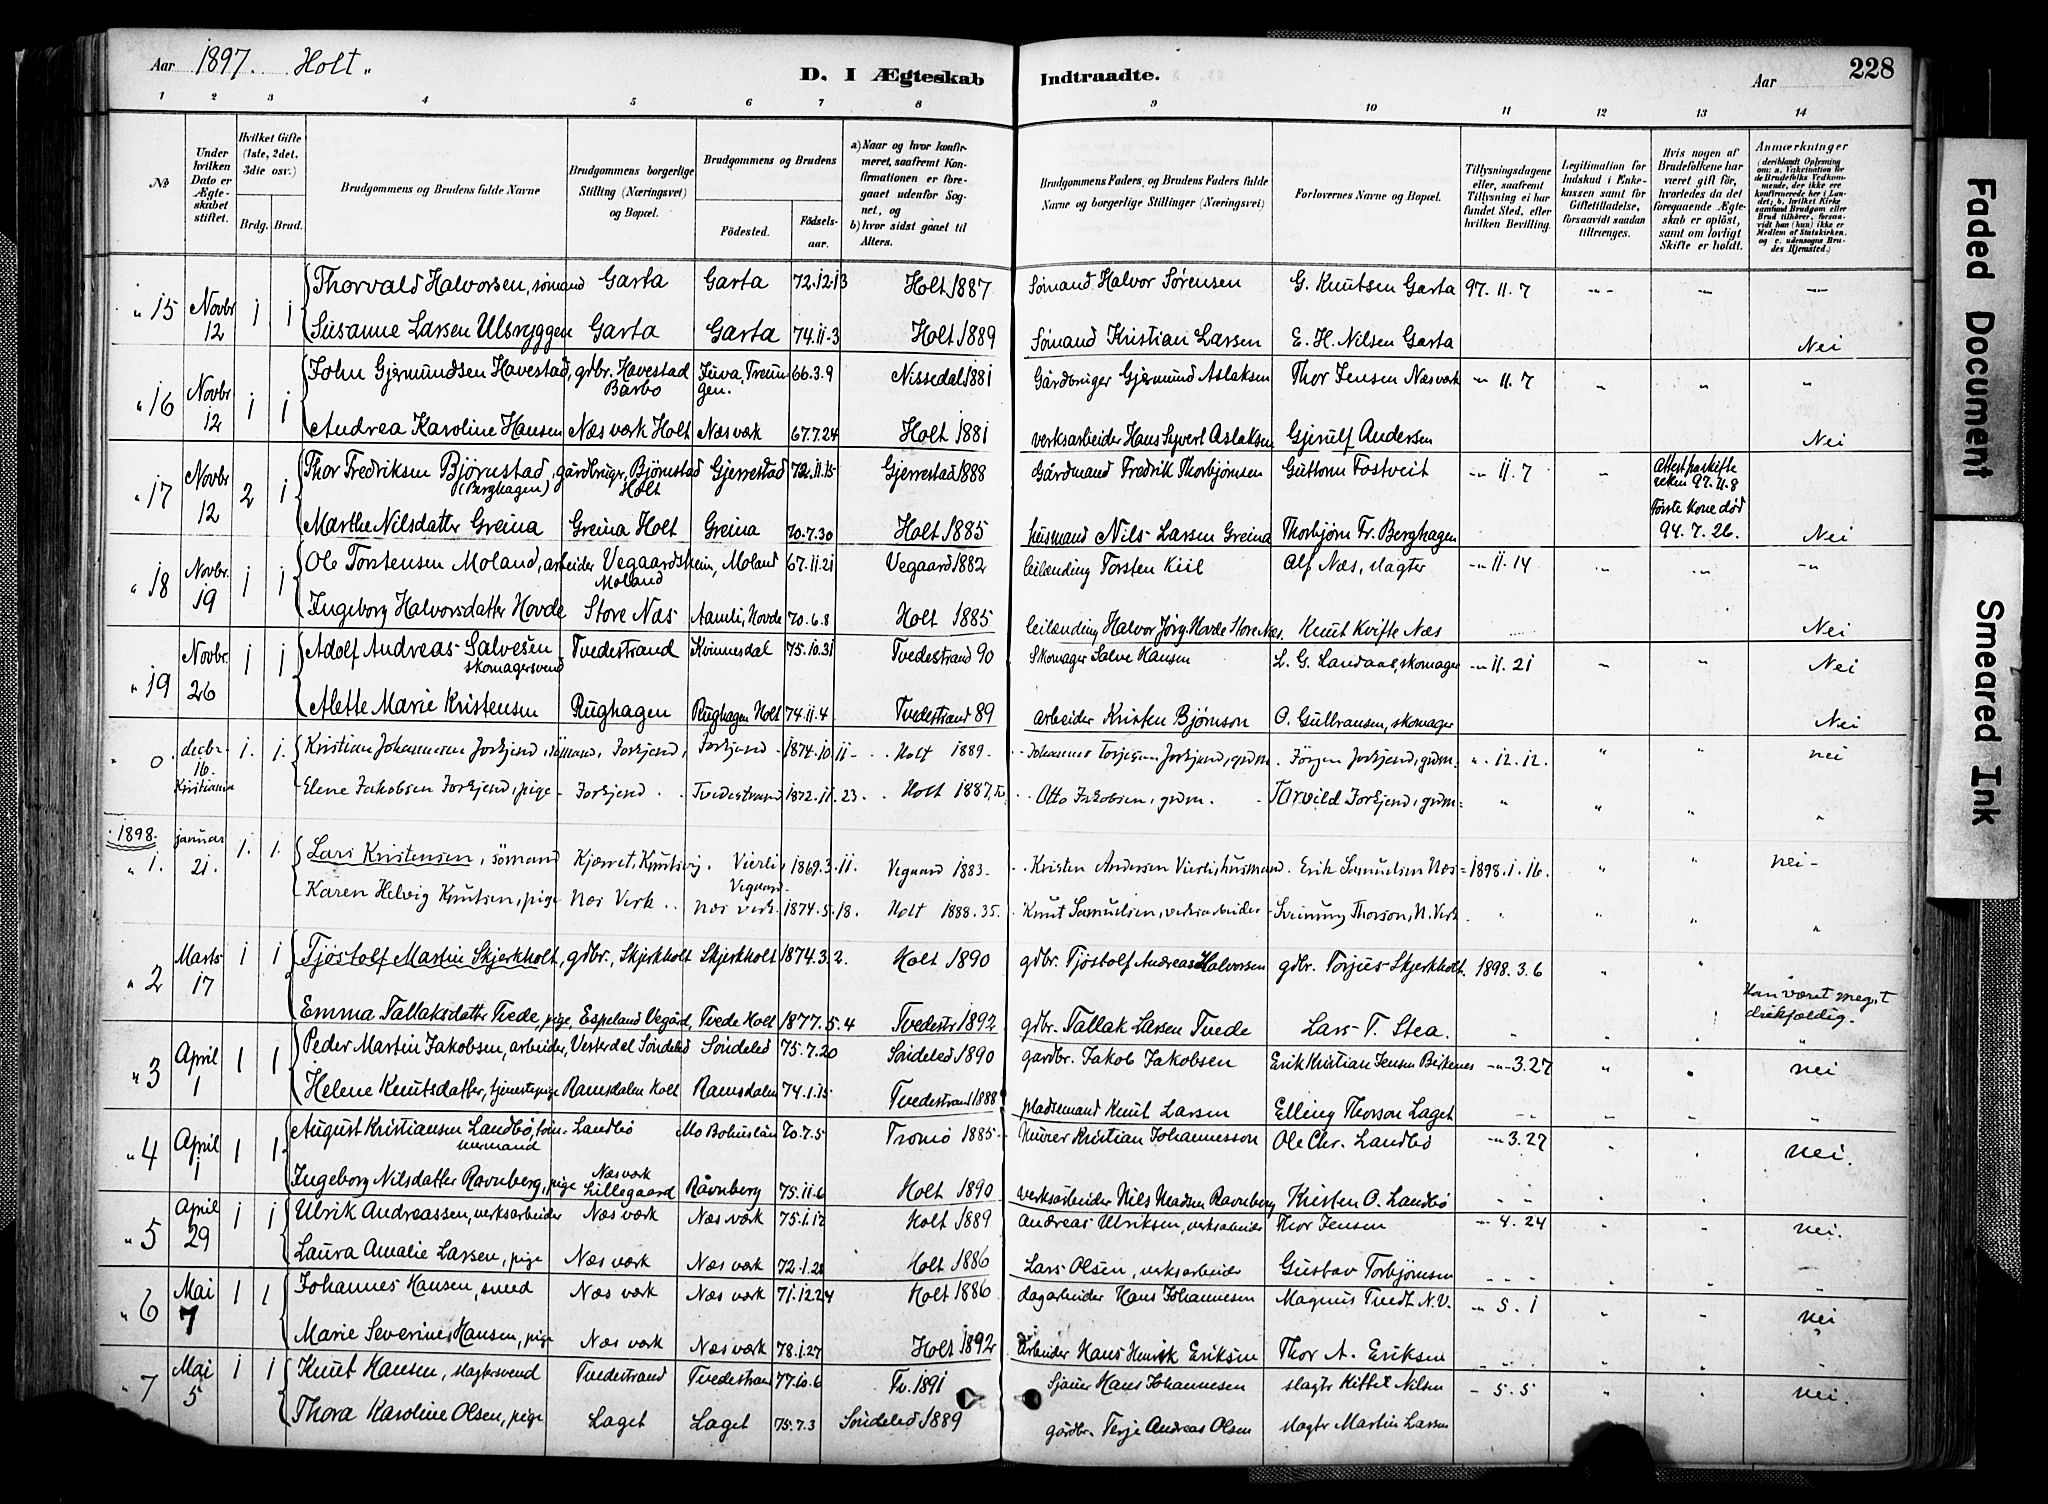 Aar 1897. Holt „
D. I Ægteskab Indtraadte.
Aar
228
1 2 3 4 5 6 7 8 9 10 11 12 13 14
№
Under hvilken Dato er Ægteskabet stiftet.
Hvilket Gifte (1ste, 2det, 3die osv.)
Brdg. Brud.
Brudgommens og Brudens fulde Navne
Brudgommens borgerlige Stilling (Næringsvei) og Bopæl.
Brudgommens og Brudens
Födested.
Födselsaar.
a) Naar og hvor konfirmeret, saafremt Konfirmationen er foregaaet udenfor Sognet, og
b) hvor sidst gaaet til Alters.
Brudgommens Faders og Brudens Faders fulde Navne og borgerlige Stillinger (Næringsvei)
Forlovernes Navne og Bopæl.
Tillysningsdagene eller, saafremt Tillysning ei har fundet Sted, efter hvilken Bevilling.
Legitimation for Indskud i Enkekassen samt for Giftetilladelse, forsaavidt saadan tiltrænges.
Hvis nogen af Brudefolkene har været gift för, hvorledes da det foregaaende Ægteskab er oplöst, samt om lovligt Skifte er holdt.
Anmærkninger
(deriblandt Oplysning om: a. Vakcination for de Brudefolks Vedkommende, der ikke ere konfirmerede her i Landet; b. hvilket Kirkesamfund Brudgom eller Brud tilhörer, forsaavidt han (hun) ikke er Medlem af Statskirken, og c. udensogns Brudes Hjemsted.)
„ 15 Novbr 12 1 1 Thorvald Halvorsen, sømand Garta Garta 72.12.13 Holt 1887 Sømand Halvor Sørensen G. Knutsen Garta 97. 11. 7
Susanne Larsen Ulsryggen Garta Garta 74.11.3 Holt 1889 Sømand Kristian Larsen E. H. Nilsen Garta Nei
„ 16 Novbr 12 1 1 John Gjermundsen Havestad, gdbr. Havestad Barbo Juva, Treungen. 66.3.9 Nissedal 1881 Gårdbruger Gjermund Aslaksen Thor Jensen Næsværk „ 11. 7 „ „ „
Andrea Karoline Hansen Næsværk Holt Næsværk 67.7.24 Holt 1881 verksarbeider Hans Syvert Aslaksen Gjerulf Andersen Nei
„ 17 Novbr 12 2 1 Thor Fredriksen Bjørnstad (Berghagen), gårdbruger, Bjørnstad Holt Gjerrestad 72.11.15 Gjerrestad 1888 Gårdmand Fredrik Thorbjørnsen Guttorm Fostveit „ 11. 7 „ Attest fra skifteretten 97.11.8
Første kone død 94. 7. 26.
Marthe Nilsdatter Greina Greina Holt Greina 70.7.30 Holt 1885 husmand Nils Larsen Greina Thorbjørn Fr. Berghagen Nei
„ 18 Novbr. 19 1 1 Ole Torstensen Moland, arbeider Vegaardsheim, Moland Moland 67.11.21 Vegaard 1882 leilending Torsten Kiil Alf Næs, slagter „ 11. 14 „ „ „
Ingeborg Halvorsdatter Hovde Store Næs Aamli, Hovde 70.6.8 Holt 1885 leilending Halvor Jørg. Hovde Store Næs. Knut Kvifte Næs Nei
„ 19 Novbr. 26 1 1 Adolf Andreas Salvesen skomagersvend Tvedestrand Kvinnesdal 75.10.31 Tvedestrand 90 Skomager Salve Hansen L. G. Landaas, skomager „ 11. 21 „ „ Nei
Alette Marie Kristensen Rughagen Rughagen Holt 74.11.4 Tvedestrand 89 arbeider Kristen Bjørnson O. Gulbransen, skomager Nei
„ 0. decbr. 16. Kristiania 1. 1. Kristian Johannesen Jorkjend, sömand, Jorkjend, Jorkjend 1874.10.11 Holt 1889. Johannes Torjesen Jorkjend, grdm. Jörgen Jorkjend, grdm. „. 12. 12. „ „ nei
Elene Jakobsen Jorkjend, pige Jorkjend Tvedestrand 1872.11.23. Holt 1887, Otto Jakobsen, grdm. Torvild Jorkjend, grdm „ „ „ „
1898.
„ 1. januar 21. 1. 1. Lars Kristensen, sömand Kjærret, Knutsvig. Vierli, Vegaard. 1869.3.11. Vegaard 1883. Kristen Andersen Vierli, husmand. Erik Samuelsen Næs 1898.1.16. „ „ nei
Karen Helvig Knutsen, pige Næs Verk Næs verk. 1874.5.18. Holt 1888.35. Knut Samuelsen, verksarbeider Sveinung Thorson, N. Verk „ „ „ „
„ 2 Marts 17 1 1 Tjøstolf Martin Skjerkholt, gdbr., Skjerkholt Skjerkholt 1874.3.2. Holt 1890 gdbr. Tjöstolf Andreas Halvorsen gdbr. Torjus Skjerkholt. 1898. 3. 6 „ „ „
Emma Tallaksdatter Tvede, pige, Espeland Vegård, Tvede Holt 1877.5.4 Tvedestr 1892 gdbr. Tallak Larsen Tvede Lars T. Stea. „ „ „ Hun været meget
„ 3 April 1 1 1 Peder Martin Jakobsen, arbeider, Vesterdel Söndeled Söndeled 75.7.20 Söndeled 1890 gardbr. Jakob Jakobsen Erik Kristian Jensen Birkenes „ 3.27 „ „ nei
Helene Knutsdatter, tjenestepige Ramsdalen Holt Ramsdalen 74.1.15 Tvedestrand 1888 pladsemand Knut Larsen Elling Thorson Laget „ „ „ „
„ 4 April 1 1 1 August Kristiansen Landbö, tømmermand Landbö Mo Bohuslän 70.7.5 Tromö 1885 Murer Kristian Johannesson Ole Chr. Landbö „ 3.27 „ „ nei.
Ingeborg Nilsdatter Ravnberg, pige Næsværk Lillegaard Råvnberg 75.11.6 Holt 1890 verksarbeider Nils Madsen Ravnberg Kristen O. Landbö „ „ „ „
„ 5 April 29 1 1 Ulrik Andreassen, verksarbeider Næs værk Næs værk 75.1.12 Holt 1889 Andreas Ulriksen, verksarbeider Thor Jensen „ 4. 24 „ „ nei.
Laura Amalie Larsen, pige Næs værk Næs værk 72.1.28 Holt 1886 Lars Olsen, verksarbeider Gustav Torbjørnsen „ „ „ „
„ 6 Mai 7 1 1 Johannes Hansen, smed Næs værk Næs værk 71.12.24 Holt 1886 dagarbeider Hans Johannesen Magnus Tvedt N.V. „ 5. 1 „ „ nei
Marie Severine Hansen, pige Næs værk Næs værk 78.1.27 Holt 1892 arbeider Hans Henrik Eriksen Thor A. Eriksen „ „ „ „
„ 7 Mai 5 1 1 Knut Hansen, slagtersvend Tvedestrand Tvedestran 77.10.6 Tv. 1891 Sjauer Hans Johannesen slagtr Kittel Nilsen „ 5. 5 „ „ nei.
Thora Karoline Olsen, pige Laget Laget 75.7.3 Söndeled 1889 gårdbr. Terje Andreas Olsen slagtr Martin Larsen
Faded Document
Smeared Ink